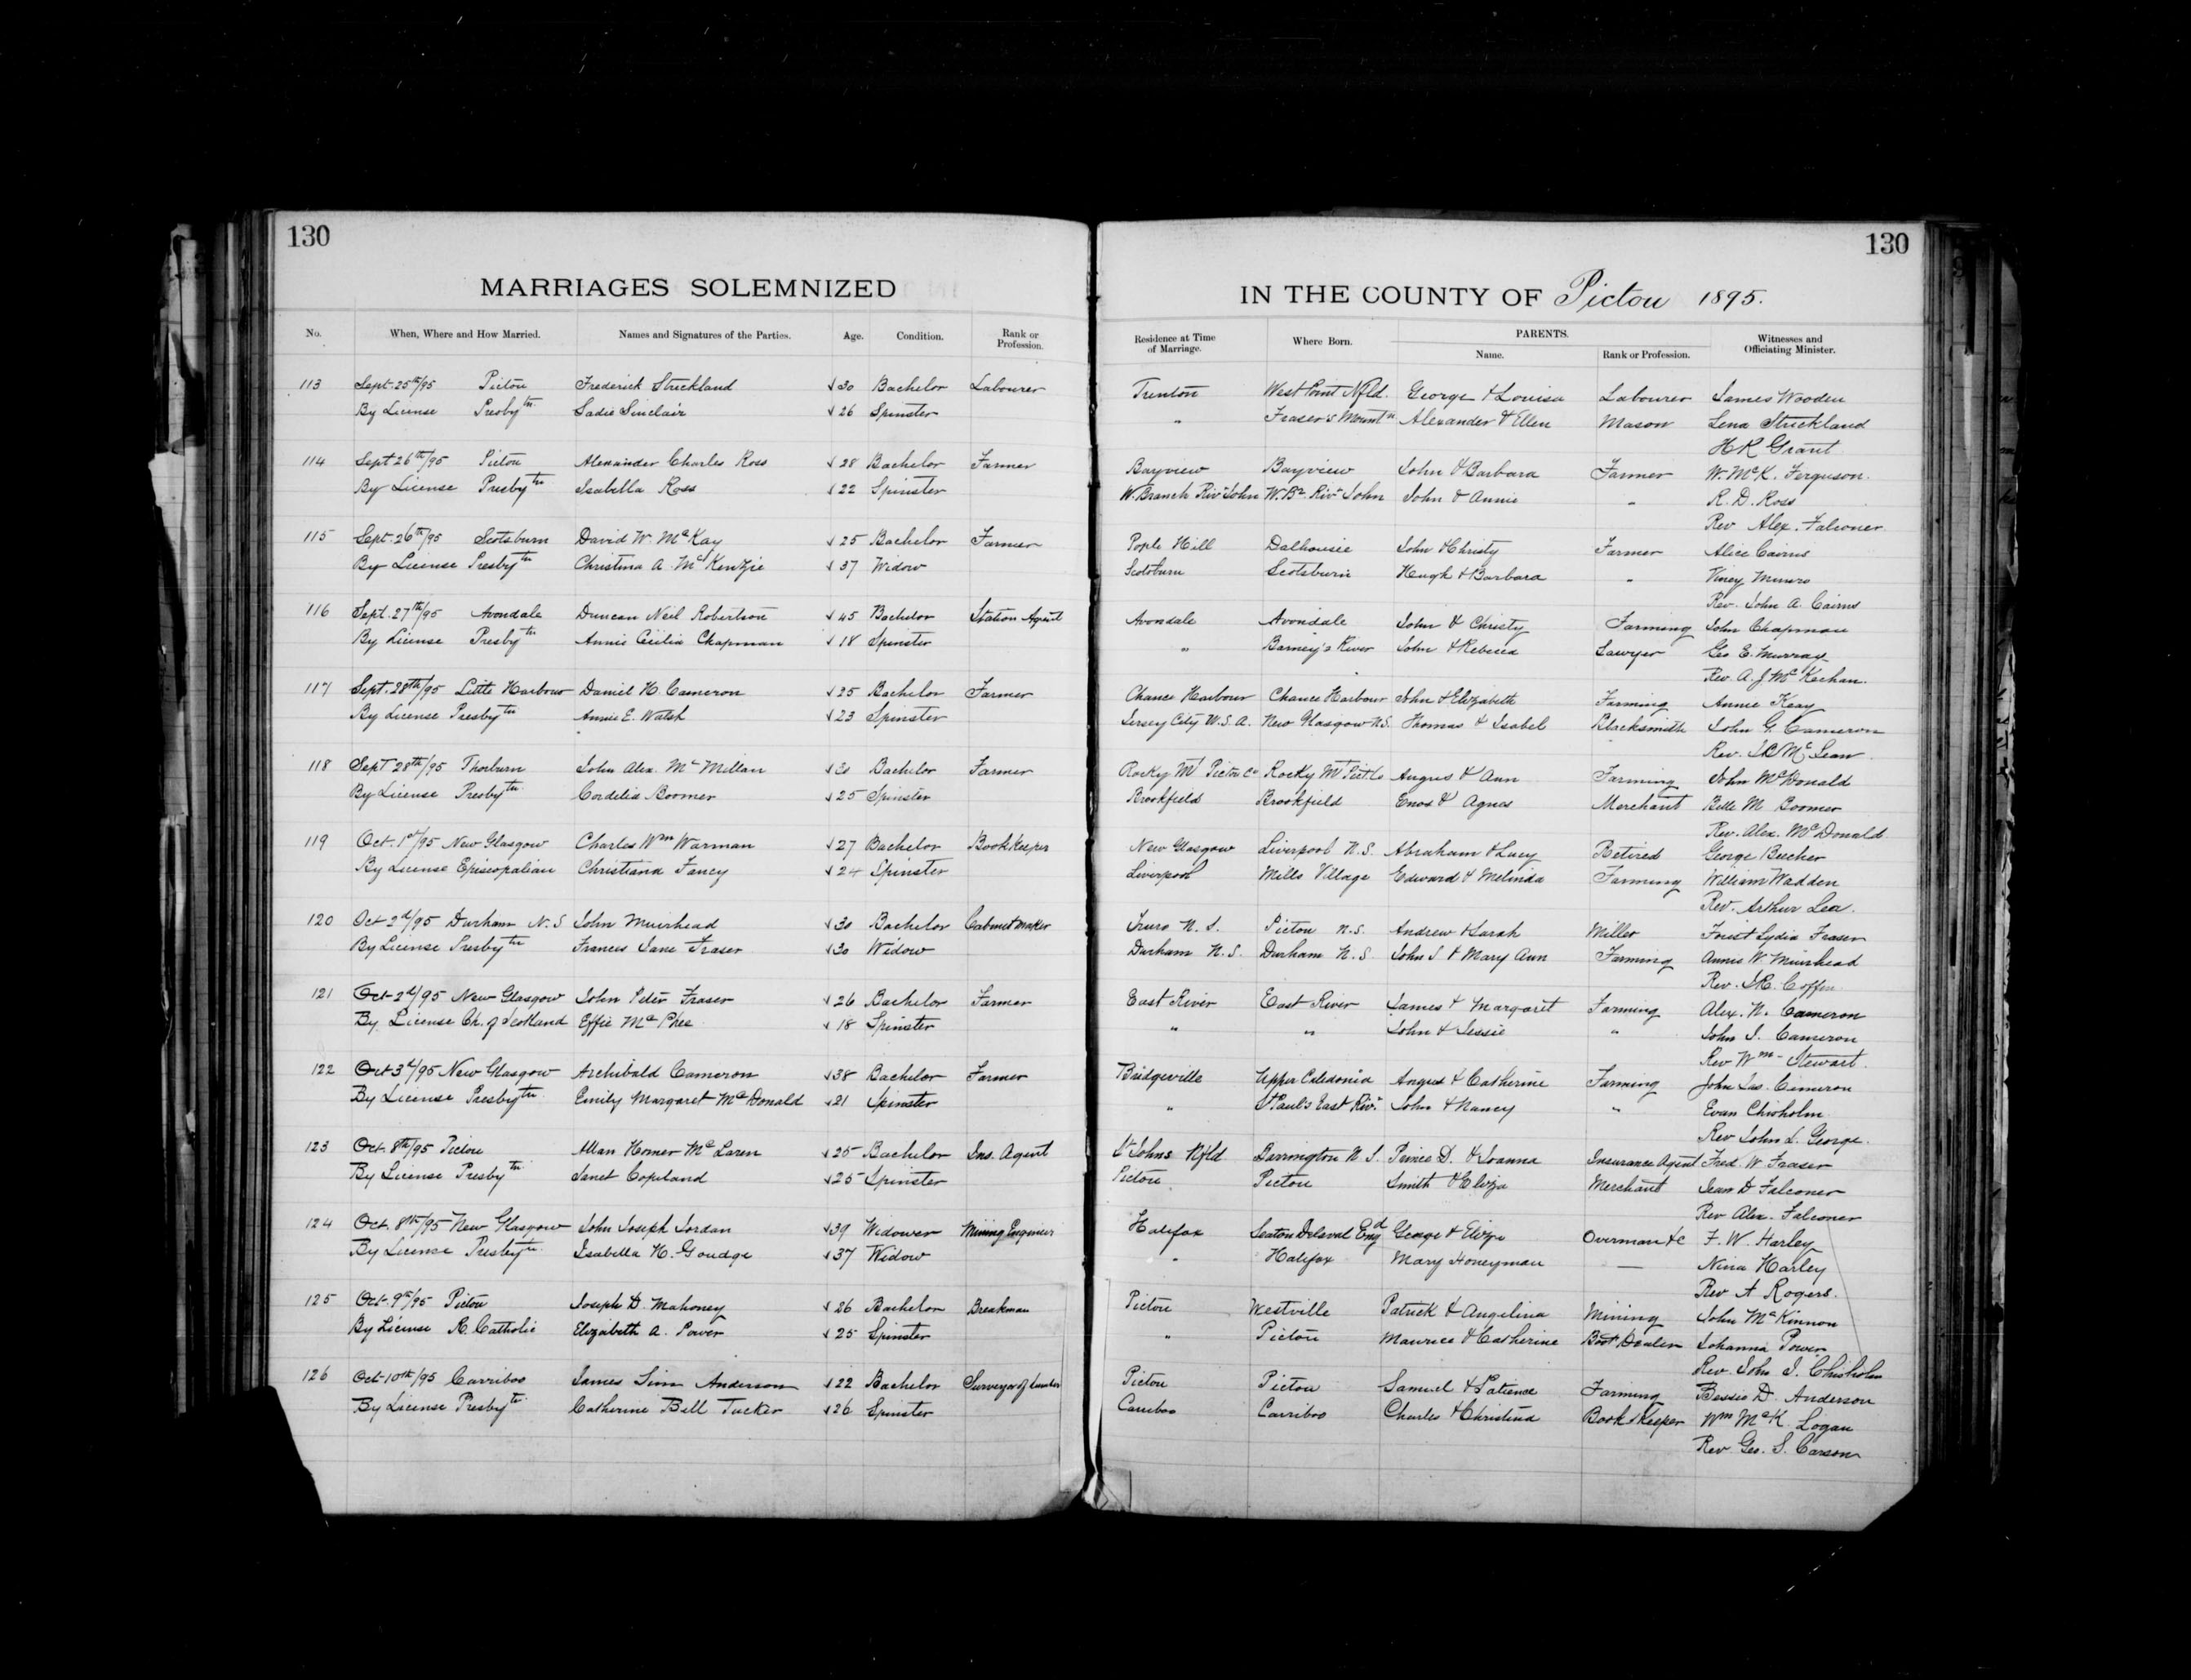 130
MARRIAGES SOLEMNIZED
No. When, Where and How Married. Names and Signatures of the Parties. Age. Condition. Rank or Profession.
113 Sept. 25th/95 Pictou Frederick Strickland √30 Bachelor Labourer
By License Presbytn. Sadie Sinclair √26 Spinster
114 Sept 26th/95 Pictou Alexander Charles Ross √28 Bachelor Farmer
By License Presbytn Isabella Ross √22 Spinster
115 Sept. 26th/95 Scotsburn David W. McKay √25 Bachelor Farmer
By License Presbytn Christina A. McKenzie √37 Widow
116 Sept. 27th/95 Avondale Duncan Neil Robertson √45 Bachelor Station Agent
By License Presbytn Annie Cecilia Chapman √18 Spinster
117 Sept. 28th/95 Little Harbour Daniel H. Cameron √25 Bachelor Farmer
By License Presbytn Annie E. Walsh √23 Spinster
118 Sept 28th/95 Thorburn John Alex. McMillan √30 Bachelor Farmer
By License Presbytn. Cordelia Boomer √25 Spinster
119 Oct. 1st/95 New Glasgow Charles Wm Warman √27 Bachelor Bookkeeper
By License Episcopalian Christiana Fancy √24 Spinster
120 Oct 2d/95 Durham N.S John Muirhead √30 Bachelor Cabinet Maker
By License Presbytn Frances Jane Fraser √30 Widow
121 Oct 2d/95 New Glasgow John Peter Fraser √26 Bachelor Farmer
By License Ch. of Scotland Effie McPhee √18 Spinster
122 Oct 3d/95 New Glasgow Archibald Cameron √38 Bachelor Farmer
By License Presbytn. Emily Margaret McDonald √21 Spinster
123 Oct. 8th/95 Pictou Allan Homer McLaren √25 Bachelor Ins. Agent
By License Presbytn. Janet Copeland √25 Spinster
124 Oct. 8th/95 New Glasgow John Joseph Jordan √39 Widower Mining Engineer
By License Presbytn. Isabella H. Goudge √37 Widow
125 Oct. 9th/95 Pictou Joseph D. Mahoney √26 Bachelor Breakman
By License R. Catholic Elizabeth A. Power √25 Spinster
126 Oct. 10th/95 Carriboo James Sim Anderson √22 Bachelor Surveyor of Lumber
By License Presbytn. Catherine Bell Tucker √26 Spinster
130
IN THE COUNTY OF Pictou 1895.
Residence at Time of Marriage. Where Born. PARENTS. Name. Rank or Profession. Witnesses and Officiating Minister.
Trenton West Point Nfld. George & Louisa Labourer James Wooden
" Fraser's Mountn Alexander & Ellen Mason Lena Strickland
H R Grant
Bayview Bayview John & Barbara Farmer W. McK. Ferguson.
W. Branch Rivr John W. Br. Rivr John John & Annie " R. D. Ross
Rev Alex. Falconer
Pople Hill Dalhousie John & Christy Farmer Alice Cairns
Scotsburn Scotsburn Hugh & Barbara " Munro
Rev. John A. Cairns
Avondale Avondale John & Christy Farming John Chapman
" Barney's River John & Rebecca Sawyer Geo E. Murray
Rev. A. J. McKechan.
Chance Harbour Chance Harbour John & Elizabeth Farming Annie Keay
Jersey City U.S.A. New Glasgow N.S. Thomas & Isabel Blacksmith John G. Cameron
Rev. McLean
Rocky Mt Pictou Co Rocky Mt Angus & Ann Farming John McDonald
Brookfield Brookfield Enos & Agnes Merchant Belle M Boomer
Rev. Alex. McDonald
New Glasgow Liverpool N.S. Abraham & Lucy Retired George Beecher
Liverpool Mills Village Edward & Melinda Farming William Wadden
Rev. Arthur Lea.
Truro N.S. Pictou N.S. Andrew & Sarah Miller Lydia Fraser
Durham N.S. Durham N.S. John S & Mary Ann Farming Annie W. Muirhead
Rev. Coffin
East River East River James & Margaret Farming Alex. N. Cameron
" " John & Jessie " John J. Cameron
Rev Wm. Stewart.
Bridgeville Upper Caledonia Angus & Catherine Farming John Jas. Cameron
" St Paul's East Rivr John & Nancy " Evan Chisholm
Rev John L. George.
St Johns Nfld Barrington N.S. D. & Joanna Insurance Agent Fred. W. Fraser
Pictou Pictou Smith & Eliza Merchant Jean D Falconer
Rev Alex. Falconer
Halifax Seaton Delaval Engd George & Eliza Overman &c F. W. Harley
" Halifax Mary Honeyman — Nina Harley
Rev A Rogers.
Pictou Westville Patrick & Angelina Mining John McKinnon
" Pictou Maurice & Catherine Boot Dealer Johanna Power
Rev. John J. Chisholm
Pictou Pictou Samuel & Patience Farming Bessie D. Anderson
Carriboo Carriboo Charles & Christina Book Keeper Wm McK. Logan
Rev Geo. S. Carson